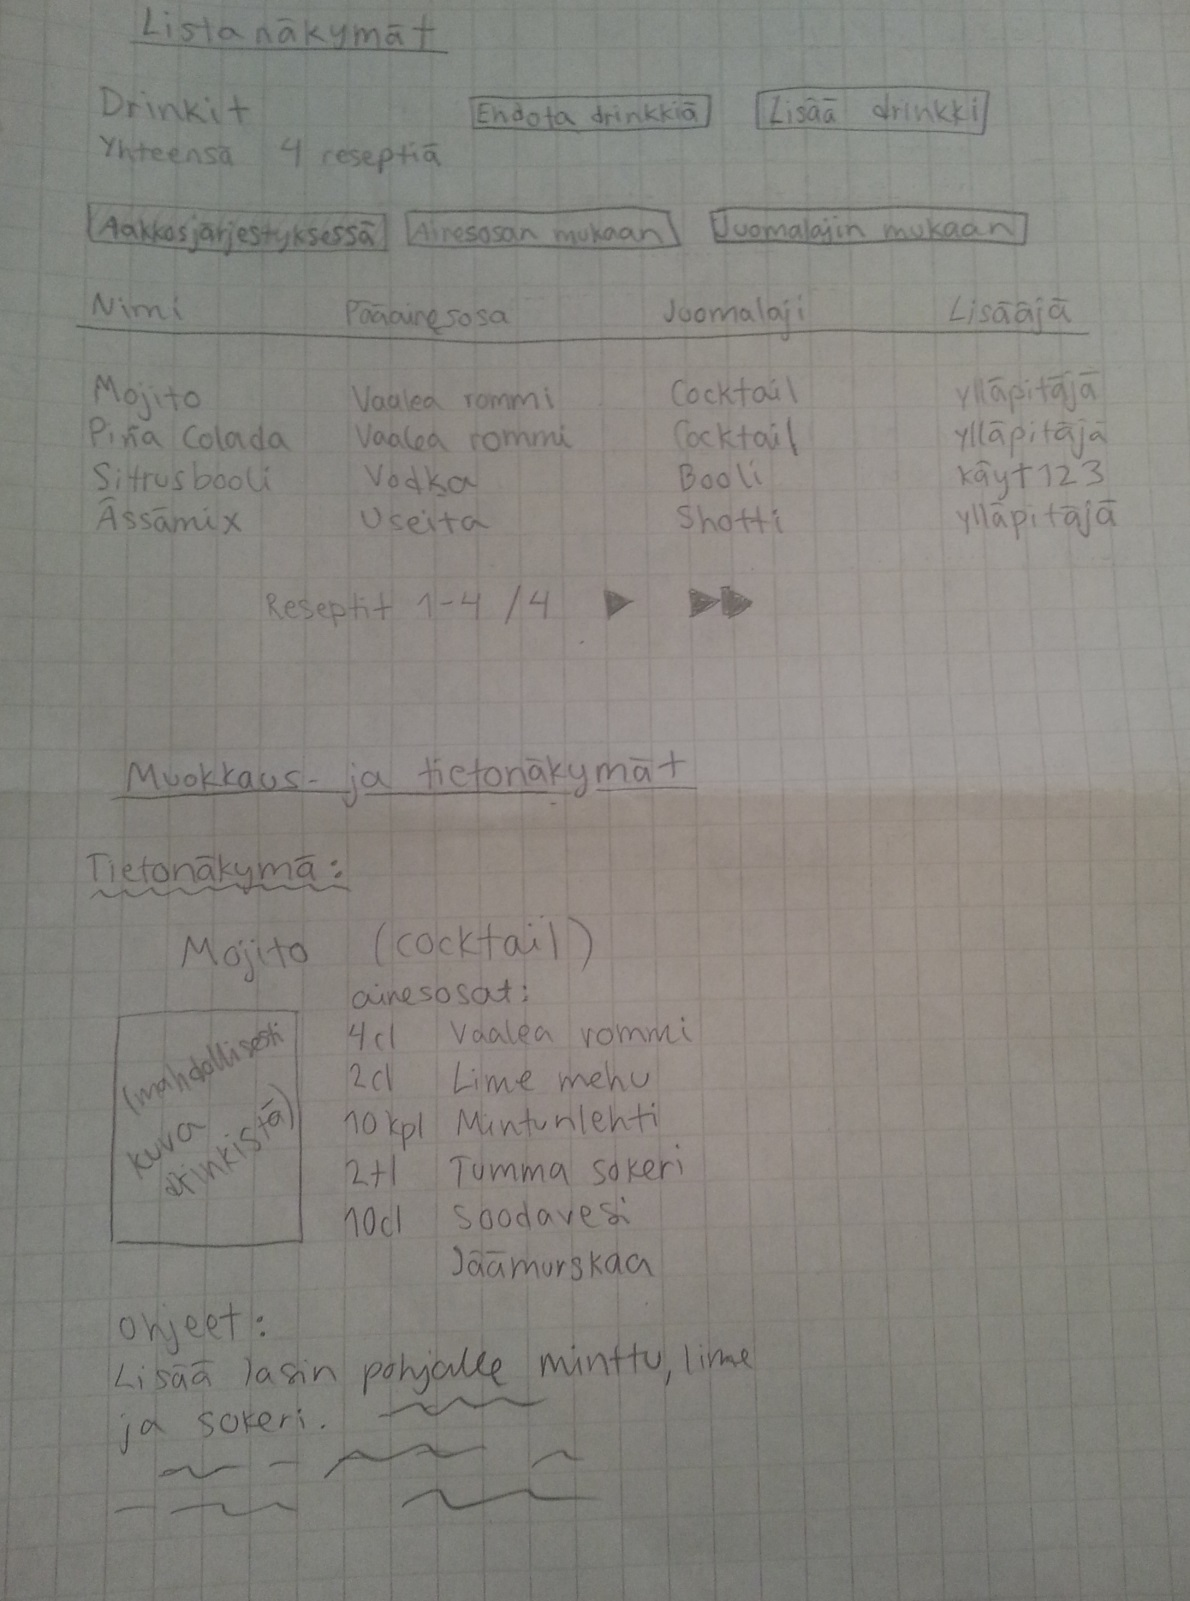 Listanäkymät
Drinkit Ehdota drinkkiä Lisää drinkki
Yhteensä 4 reseptiä
Aakkosjärjestyksessä Ainesosan mukaan Juomalajin mukaan
Nimi Pääainesosa Juomalaji Lisääjä
Mojito Vaalea rommi Cocktail ylläpitäjä
Piña Colada Vaalea rommi Cocktail ylläpitäjä
Sitrusbooli Vodka Booli käyt123
Ässämix Useita Shotti ylläpitäjä
Reseptit 1-4 / 4
Muokkaus- ja tietonäkymät
Tietonäkymä:
Mojito (cocktail)
ainesosat:
4cl Vaalea rommi
2cl Lime mehu
10kpl Mintunlehti
2tl Tumma sokeri
10cl Soodavesi
Jäämurskaa
(mahdollisesti
kuva
drinkistä)
Ohjeet:
Lisää lasin pohjalle minttu, lime
ja sokeri.